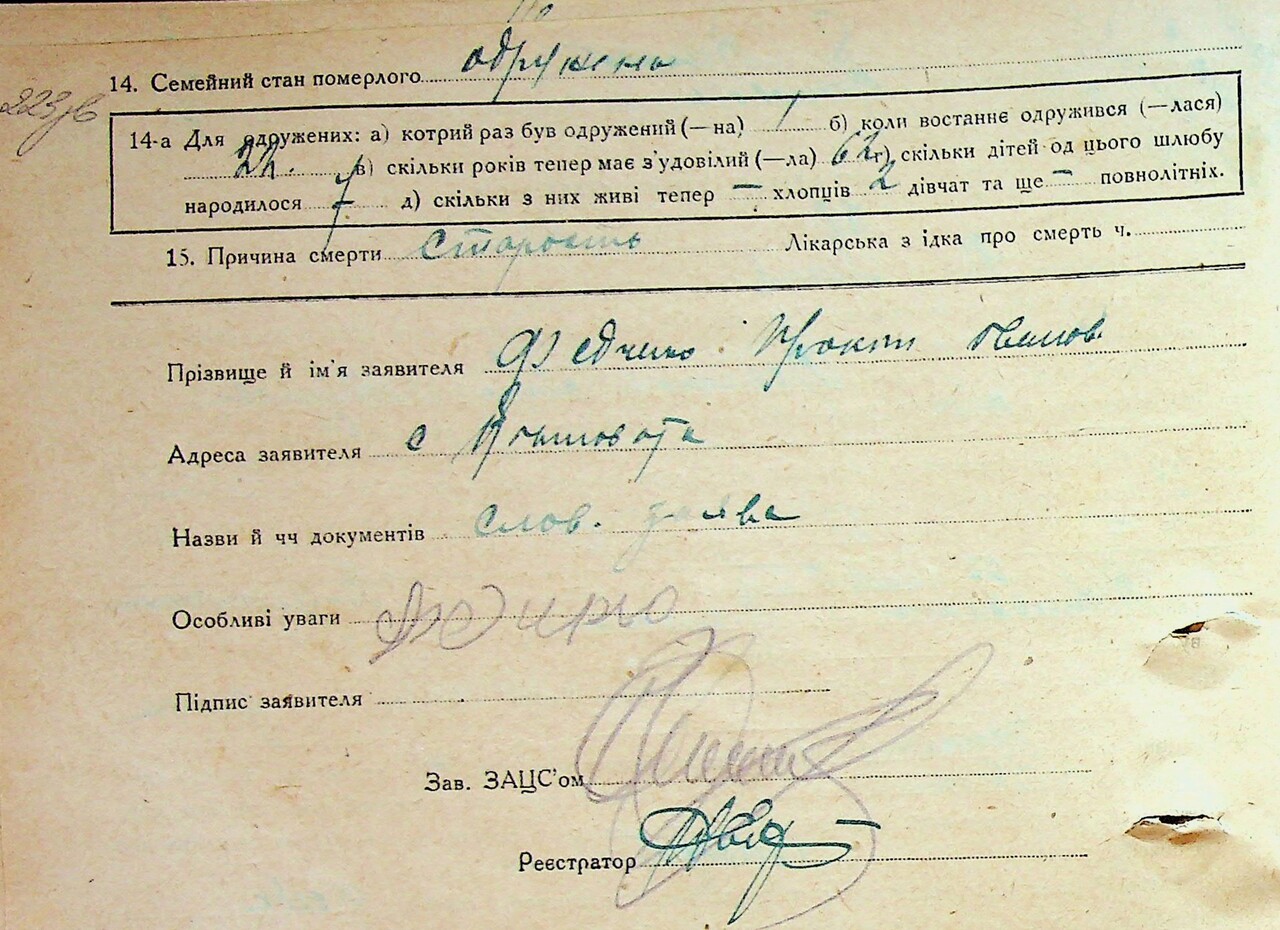 14. Семейний стан померлого одружена
223зв
14-а Для одружених: а) котрий раз був одружений (—на) 1 б) коли востаннє одружився (—лася)
22. в) скільки років тепер має з'удовілий (—ла) 62 г) скільки дітей од цього шлюбу
народилося 7 д) скільки з них живі тепер — хлопців 2 дівчат та ще — повнолітніх.
15. Причина смерти старость Лікарська з ідка про смерть ч.
Прізвище й ім'я заявителя Федченко
Адреса заявителя с
Назви й чч документів слов. заява
Особливі уваги
Підпис заявителя
Зав. ЗАЦС'ом
Реєстратор